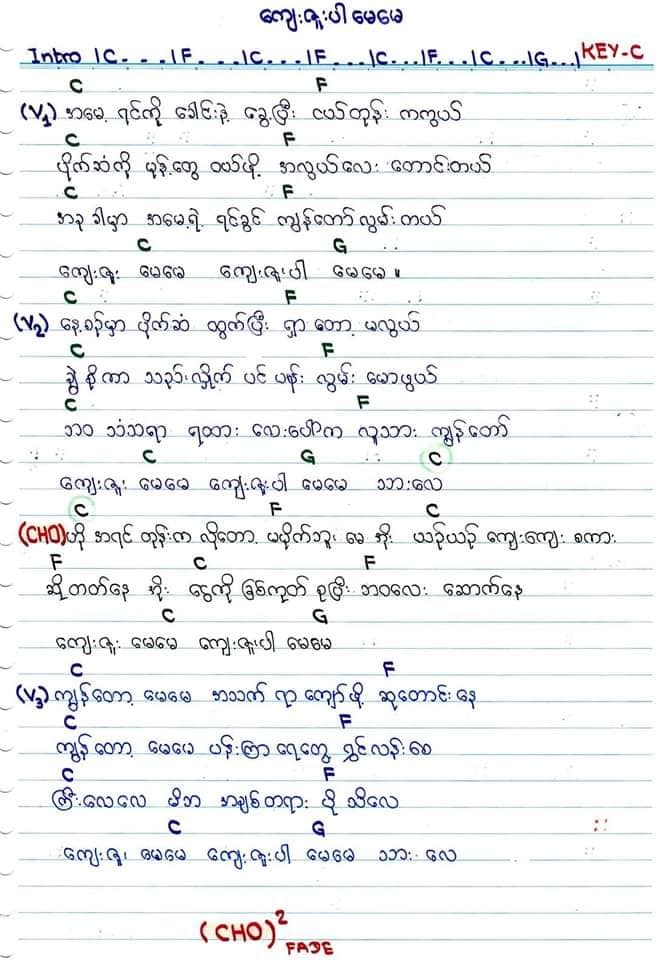 ကျေးဇူးပါ မေမေ
Intro |C. . . . |F. . . . |C. . . . |F. . . . |C. . . . |F. . . |C. . . . |G. . . | KEY-C
C F
(V₁) အမေ့ ရင်ကို ခေါင်းနဲ့ ခွေ့ပြီး ငယ်တုန်း ကကွယ်
C F
ပိုက်ဆံကို မုန့်တွေ ဝယ်ဖို့ အလွယ်လေး တောင်းတယ်
C F
အခု ခါမှာ အမေ့ရဲ့ ရင်ခွင် ကျွန်တော် လွမ်းတယ်
C G
ကျေးဇူး မေမေ ကျေးဇူးပါ မေမေ ။
C F
(V₂) နေ့စဉ်မှာ ပိုက်ဆံ ထွက်ပြီး ရှာ တော့ မလွယ်
C F
ချွဲ နဲ့ကာ သည်းလှိုက် ပင် ပန်း လွမ်း မောဖွယ်
C F
ဘဝ သံသရာ ရထား လေးပေါ်က လူသား ကျွန်တော်
C G C
ကျေးဇူး မေမေ ကျေးဇူးပါ မေမေ သားလေ
C F C
(CHO) ဟို အရင် တုန်းက လိုတော့ မမိုက်ဘူး မေ အိုး ယဉ်ယဉ် ကျေးကျေး စကား
F C F
ဆို တတ်နေ အိုး ငွေကို ခြစ်ကုတ် စုပြီး ဘဝလေး ဆောက်နေ
C G
ကျေးဇူး မေမေ ကျေးဇူးပါ မေမေ
C F
(V₃) ကျွန်တော့ မေမေ အသက် ရာ ကျော်ဖို့ ဆုတောင်းနေ
C F
ကျွန်တော့ မေမေ ပန်းကြာ ရေတွေ ရွှင်လန်းစေ
C F
ကြီးလေလေ မိဘ အချစ်တရား ပို သိလေ
C G
ကျေးဇူး မေမေ ကျေးဇူးပါ မေမေ သား လေ
(CHO)² FADE